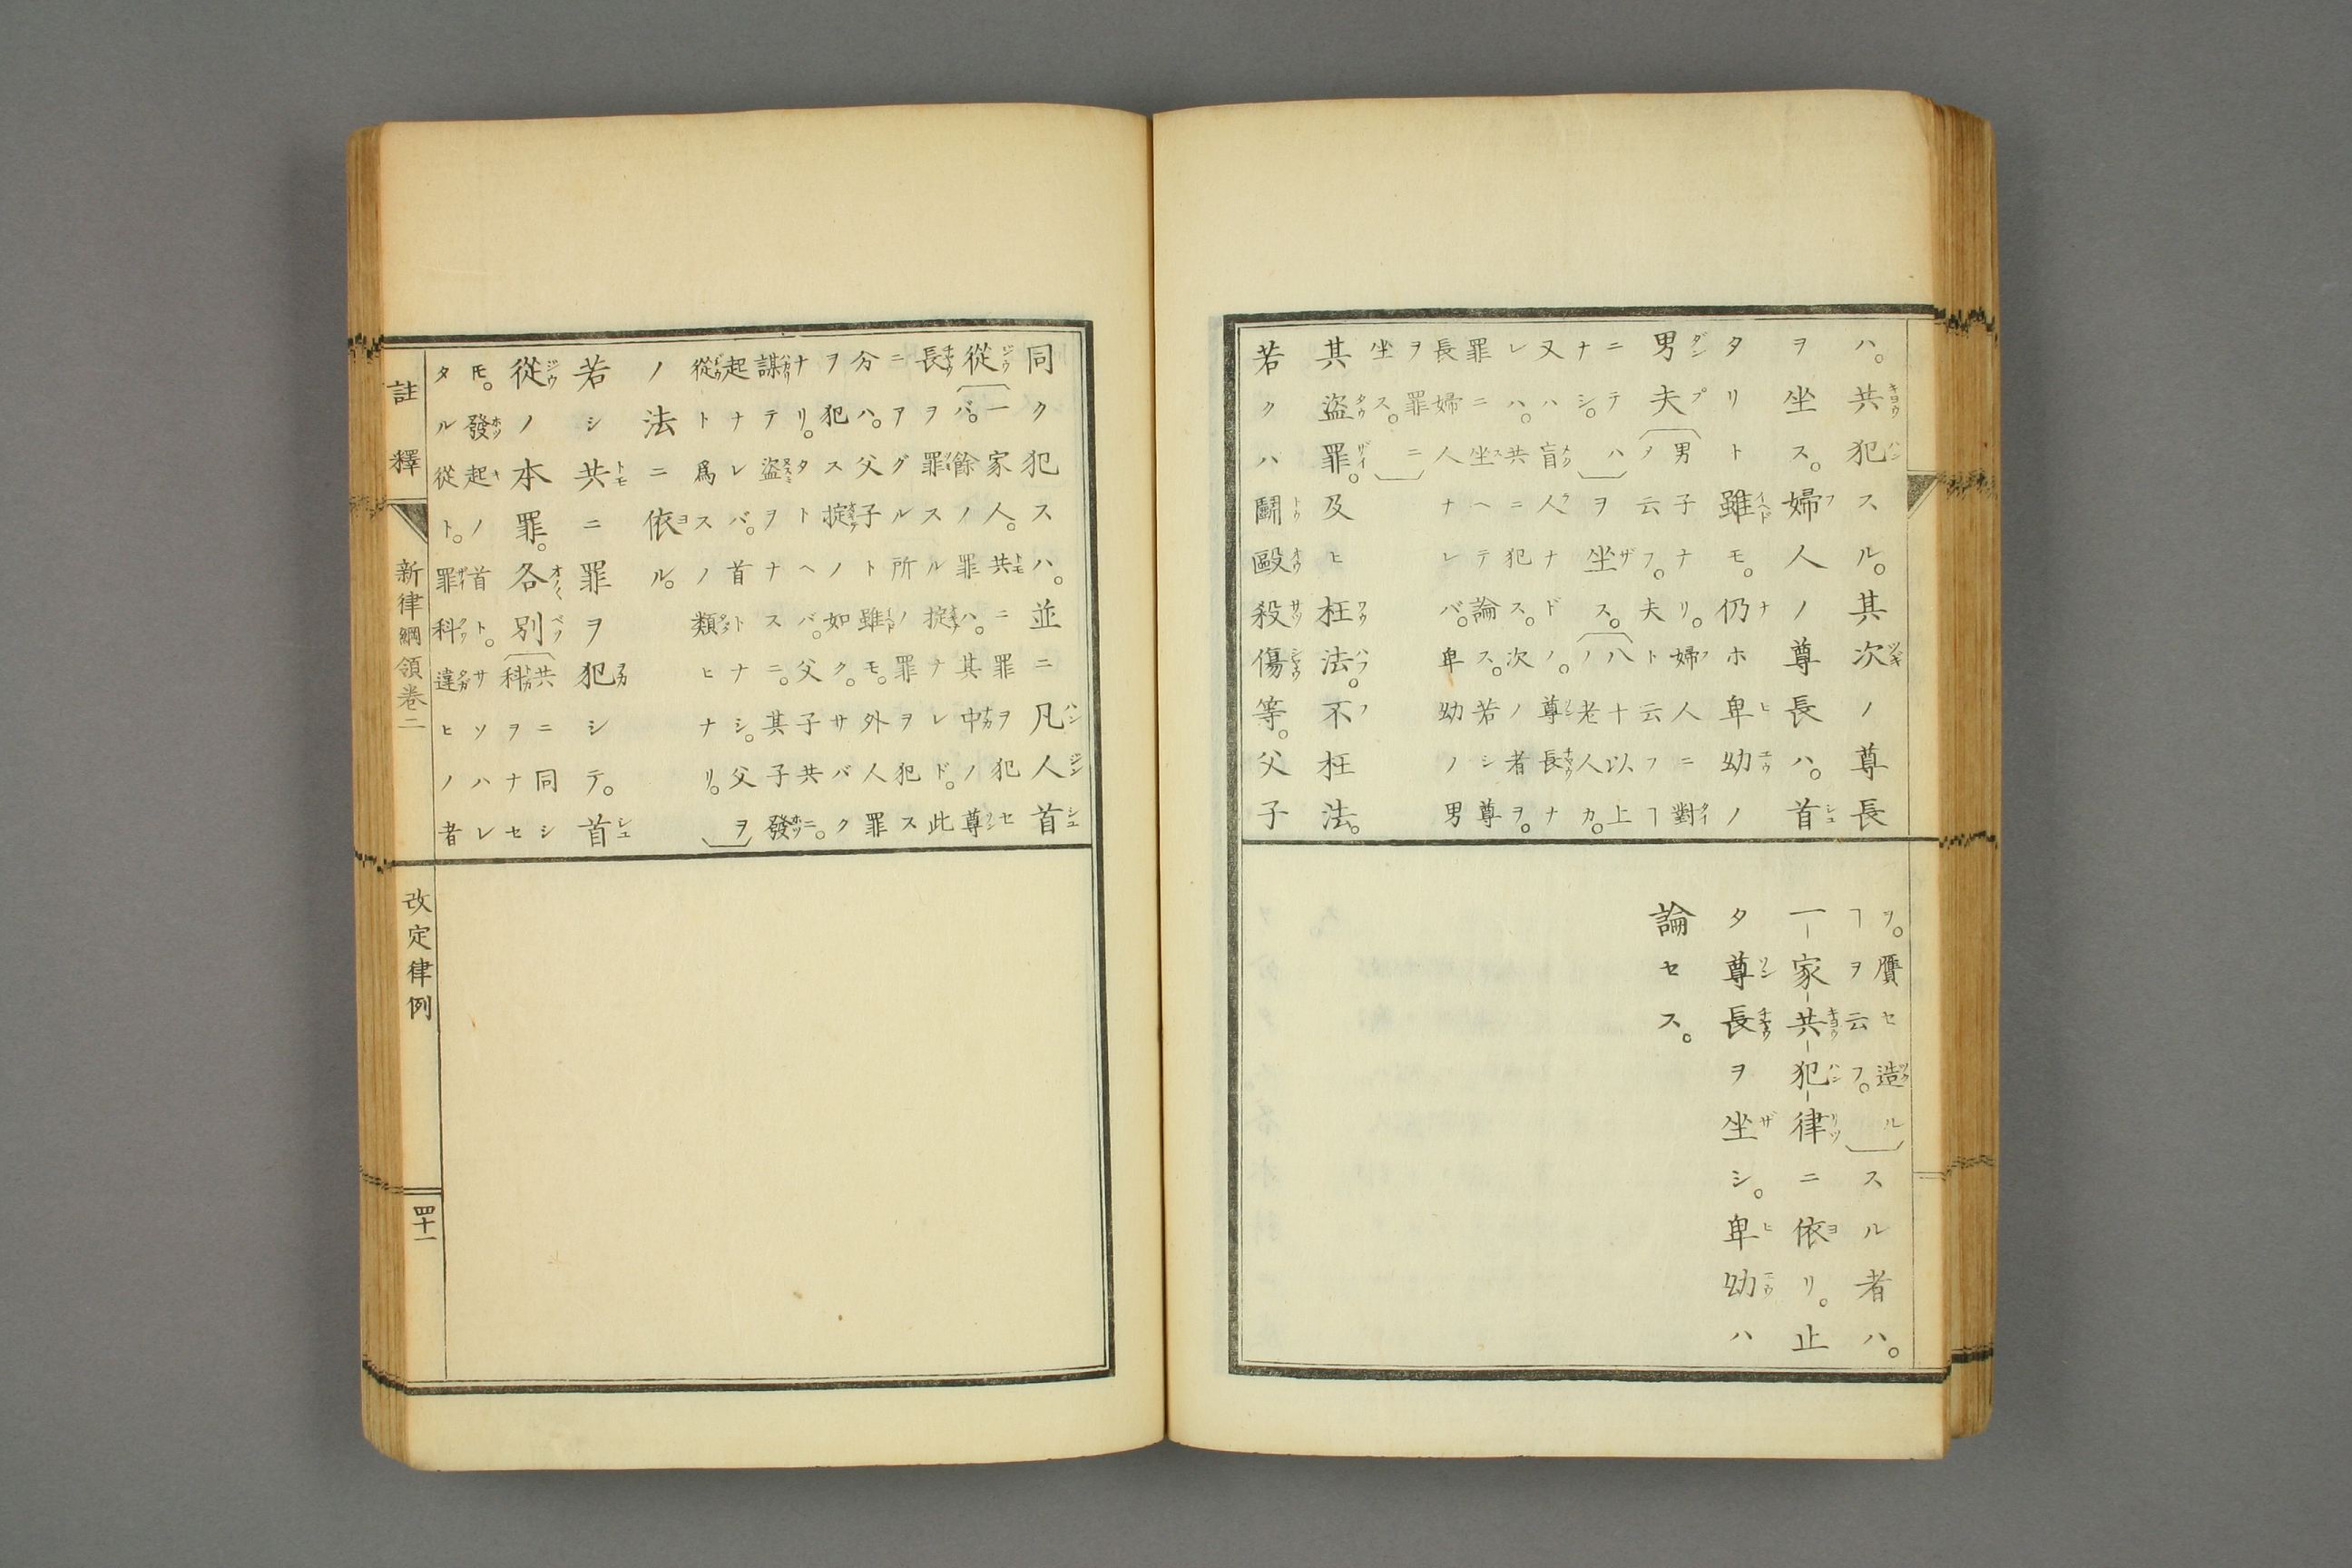 ハ。共犯スル。其次ノ尊長
ヲ坐ス。婦人ノ尊長ハ。首
タリト雖モ。仍ホ卑幼ノ
男夫
男子ナリ。婦人ニ對
ヲ云フ。夫ト云フヿ
ニテハ
ナシ。
ヲ坐ス。
八十以上
ノ老人カ。
又ハ盲人ナドノ。尊長ナ
レハ。共ニ犯ス。次ノ者ヲ。
罪ニ坐ヘテ論ス。若シ尊
長婦人ナレバ。卑幼ノ男
ヲ罪ニ
坐ス。
其盜罪。及ヒ枉法。不枉法。
若クハ鬪毆殺傷等。父子
ツ。贋セ造ル
ヿヲ云フ。
スル者ハ。
一家共犯律ニ依リ。止
タ尊長ヲ坐シ。卑幼ハ
論セス。
同ク犯スハ。並ニ凡人首
從
一家人。共ニ罪ヲ犯セ
バ。餘ノ罪ハ。其中ノ尊
長ヲ罪スル掟ナレド。此
ニアグル所ノ罪ヲ犯ス
分ハ。父子ト雖モ。外人罪
ヲ犯ス掟ノ如クサバク
ナリ。タトヘバ。父子共ニ。
謀テ盜ヲナスニ。其子發
起ナレバ。首トナシ。父ヲ
從ト爲スノ類ヒナリ。
ノ法ニ依ル。
若シ共ニ罪ヲ犯シテ。首
從ノ本罪。各別
共ニ同シ
科ヲナセ
𪜈。發起ノ首ト。サソハレ
タル從ト。罪科違ヒノ者
註釋
新律綱領卷二
改定律例
四十一